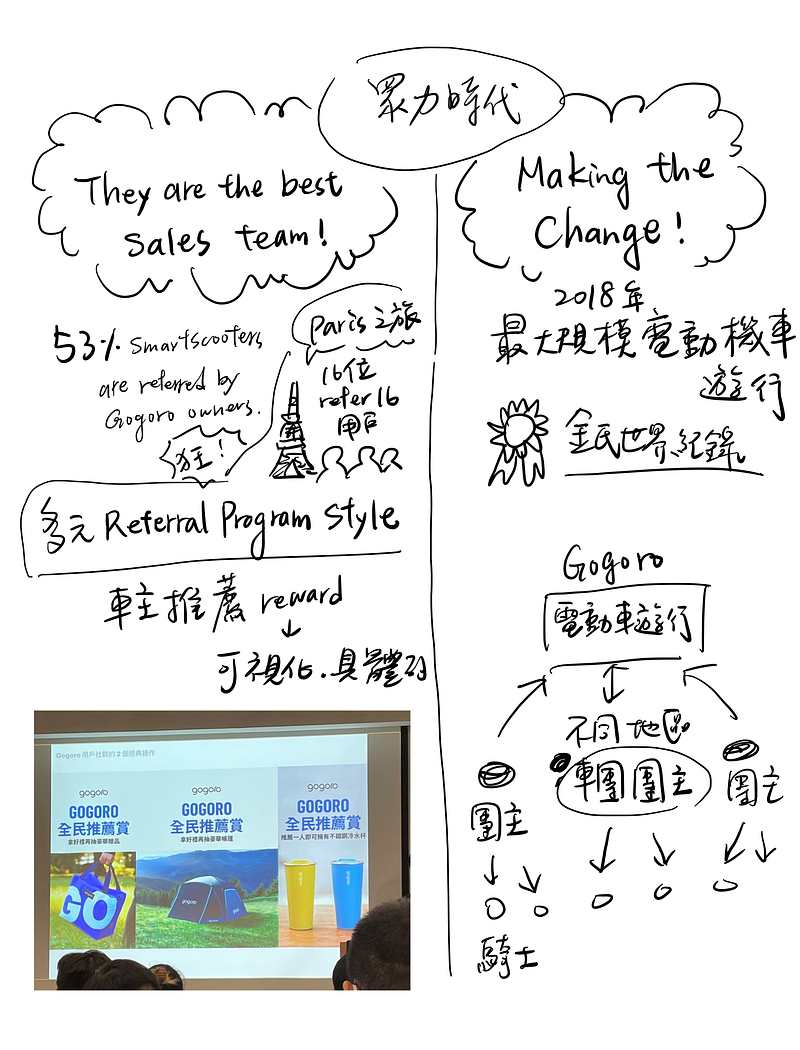 眾力時代
They are the best
Sales team!
53% Smartscooters
are referred by
Gogoro owners.
狂!
Paris之旅
16位
refer 16
用戶
多元 Referral Program Style
車主推薦 reward
可視化.具體的
Gogoro 用戶社群的 2 個經典操作
gogoro
GOGORO
全民推薦賞
拿好禮再抽豪華贈品
GO
gogoro
GOGORO
全民推薦賞
拿好禮再抽豪華帳篷
gogoro
gogoro
GOGORO
全民推薦賞
推薦一人即可擁有不鏽鋼冷水杯
Making the
Change!
2018年
最大規模電動機車
遊行
全民世界紀錄。
Gogoro
電動車遊行
不同地區
車團團主
團主
團主
騎士